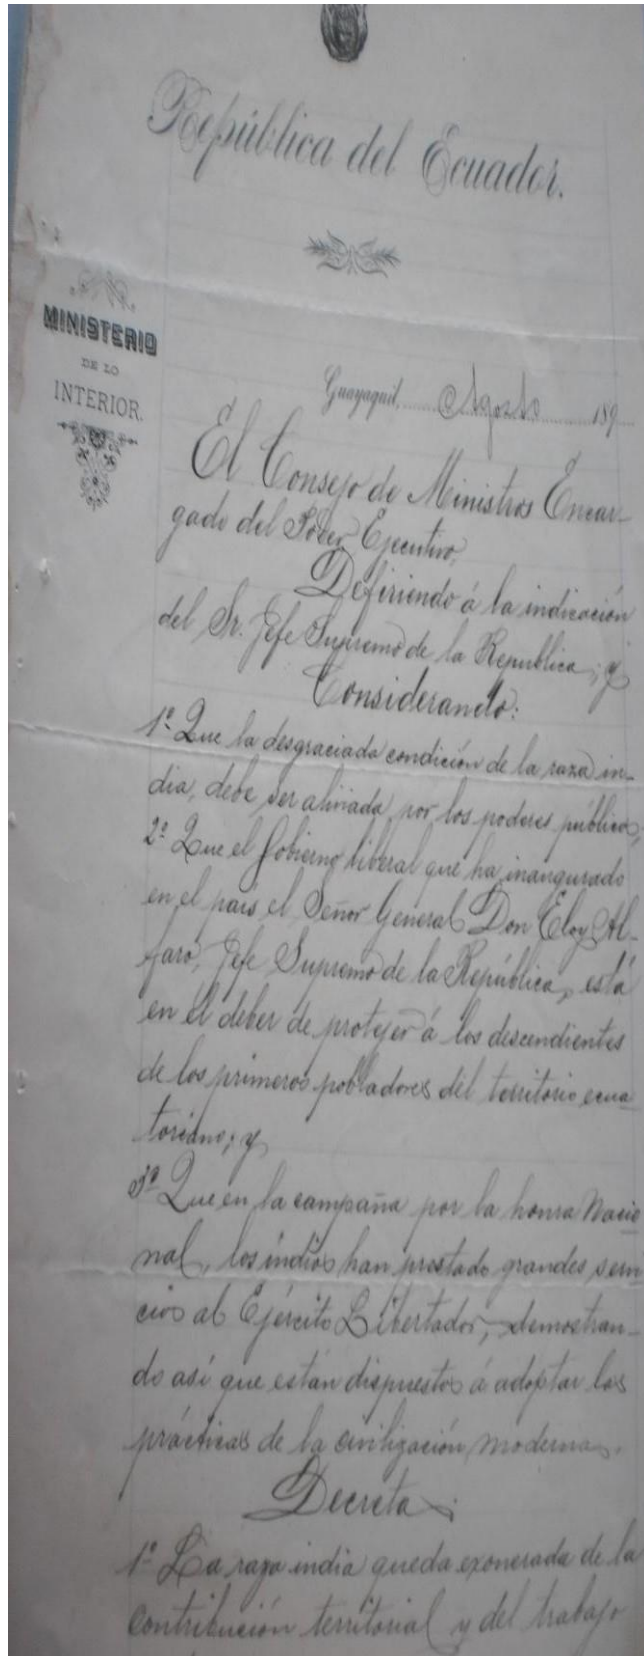 República del Ecuador.
MINISTERIO
DE LO
INTERIOR.
Guayaquil, Agosto 189
El Consejo de Ministros Encar-
gado del Poder Ejecutivo,
Defiriendo á la indicación
del Sr. Jefe Supremo de la Republica; y
Considerando:
1º Que la desgraciada condición de la raza in-
dia, debe ser aliviada por los poderes públicos,
2º Que el Gobierno liberal que ha inaugurado
en el país el Señor General Don Eloy Al-
faro, Jefe Supremo de la República, está
en el deber de protejer á los descendientes
de los primeros pobladores del territorio ecua-
toriano; y
3º Que en la campaña por la honra Nacio
nal, los índios han prestado grandes servi
cios al Ejército Libertador, demostran-
do así que están dispuestos á adoptar las
prácticas de la civilización moderna.
Decreta:
1º La raza india queda exonerada de la
contribución territorial y del trabajo